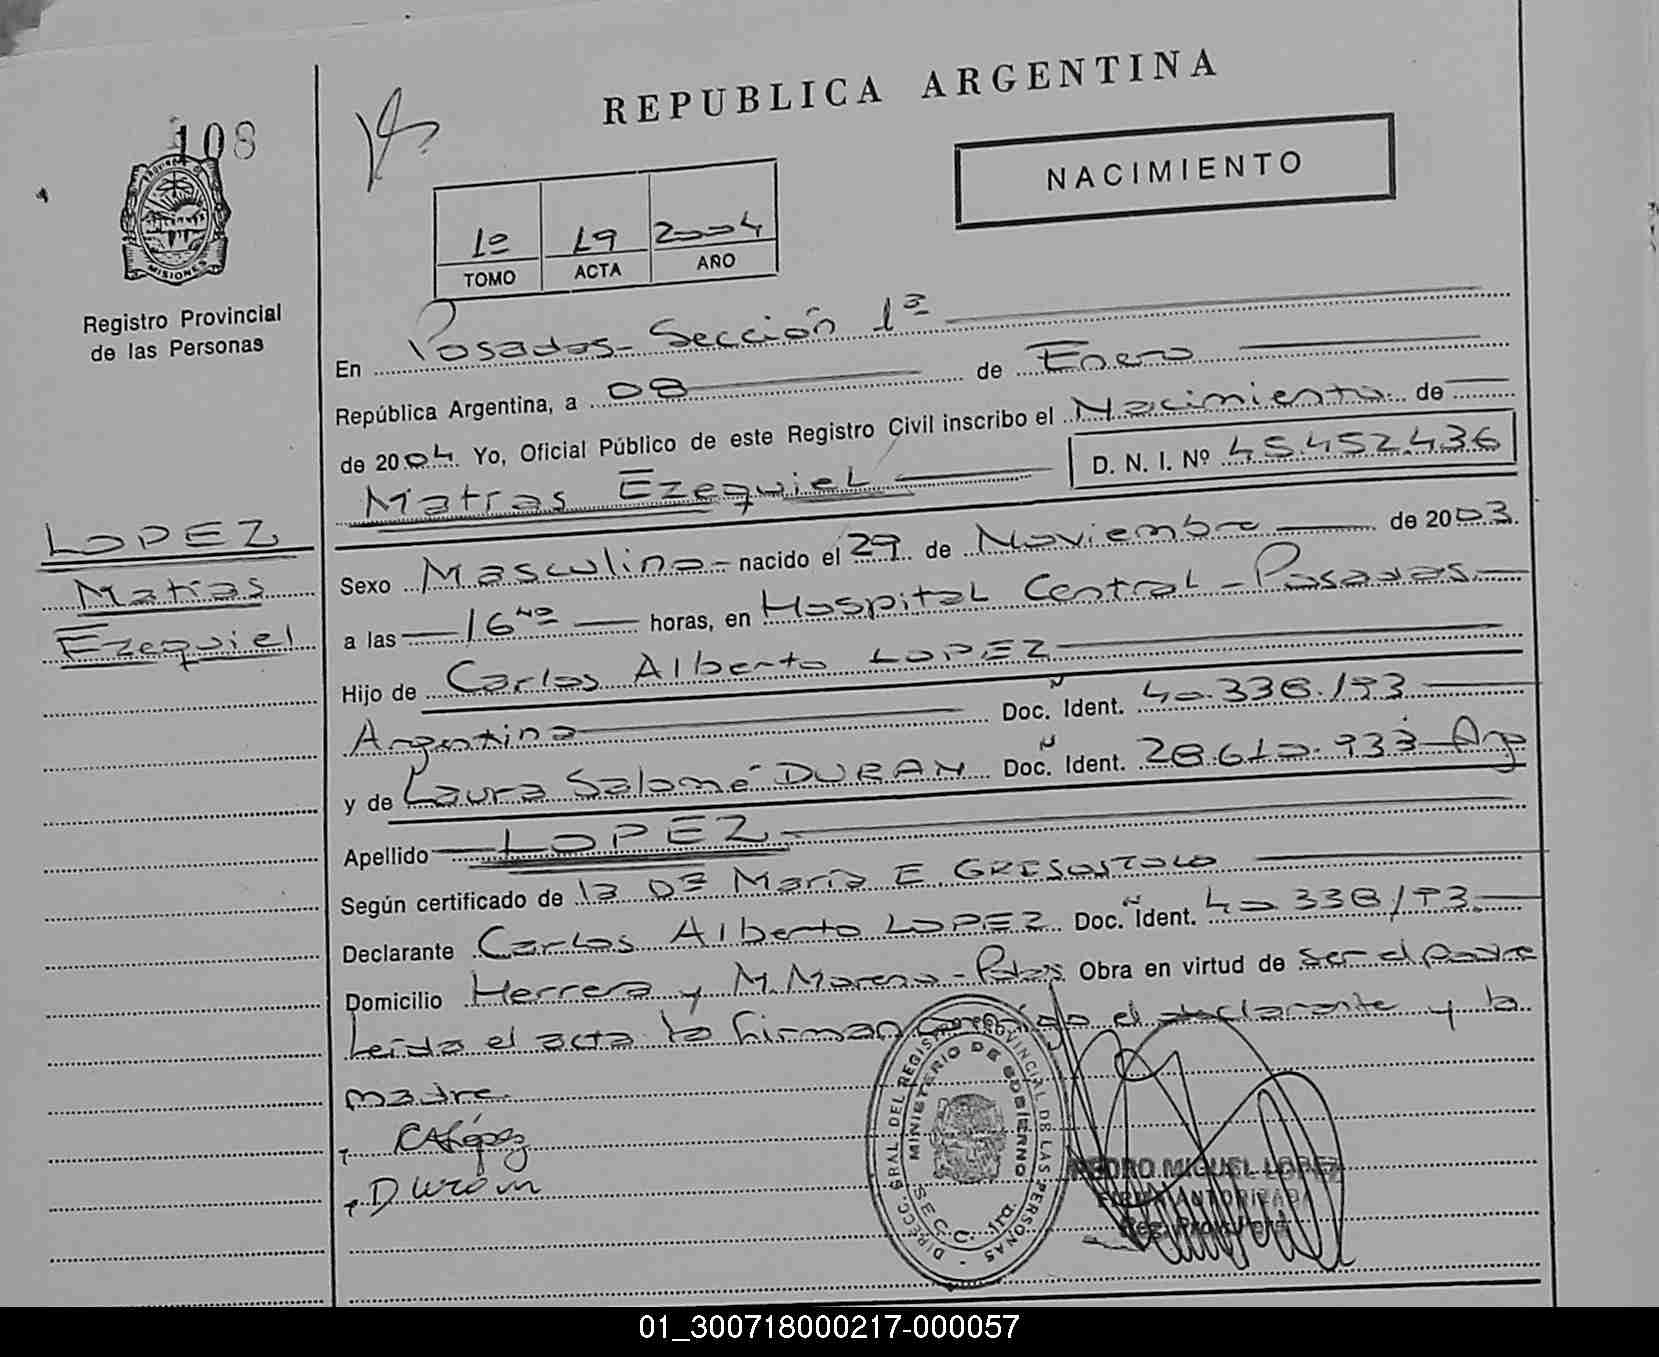 REPUBLICA ARGENTINA
108
NACIMIENTO
MISIONES
Registro Provincial
de las Personas
1º 19 2004
TOMO ACTA AÑO
En Posadas - Sección 1ª
República Argentina, a 08 de Enero
de 2004 Yo, Oficial Público de este Registro Civil inscribo el Nacimiento de
Matías Ezequiel D. N. I. Nº 45.452.436
LOPEZ
Matías
Ezequiel
Sexo Masculino - nacido el 29 de Noviembre de 2003
a las 16 horas, en Hospital Central - Posadas
Hijo de Carlos Alberto LOPEZ
Argentina Doc. Ident.
y de Laura Salomé DURAN Doc. Ident. 28.610.933 Arg
Apellido LOPEZ
Según certificado de la Dª María E.
Declarante Carlos Alberto LOPEZ Doc. Ident.
Domicilio Herrera y M. Moreno - Pdas Obra en virtud de ser el padre
Leída el acta la firman conmigo el declarante y la
madre.
CALópez
Duran
DIRECC. GRAL. DEL REGISTRO PROVINCIAL DE LAS PERSONAS
MINISTERIO DE GOBIERNO
SECC. 1ra.
PEDRO MIGUEL LOPEZ
FIRMA AUTORIZADA
01_300718000217-000057